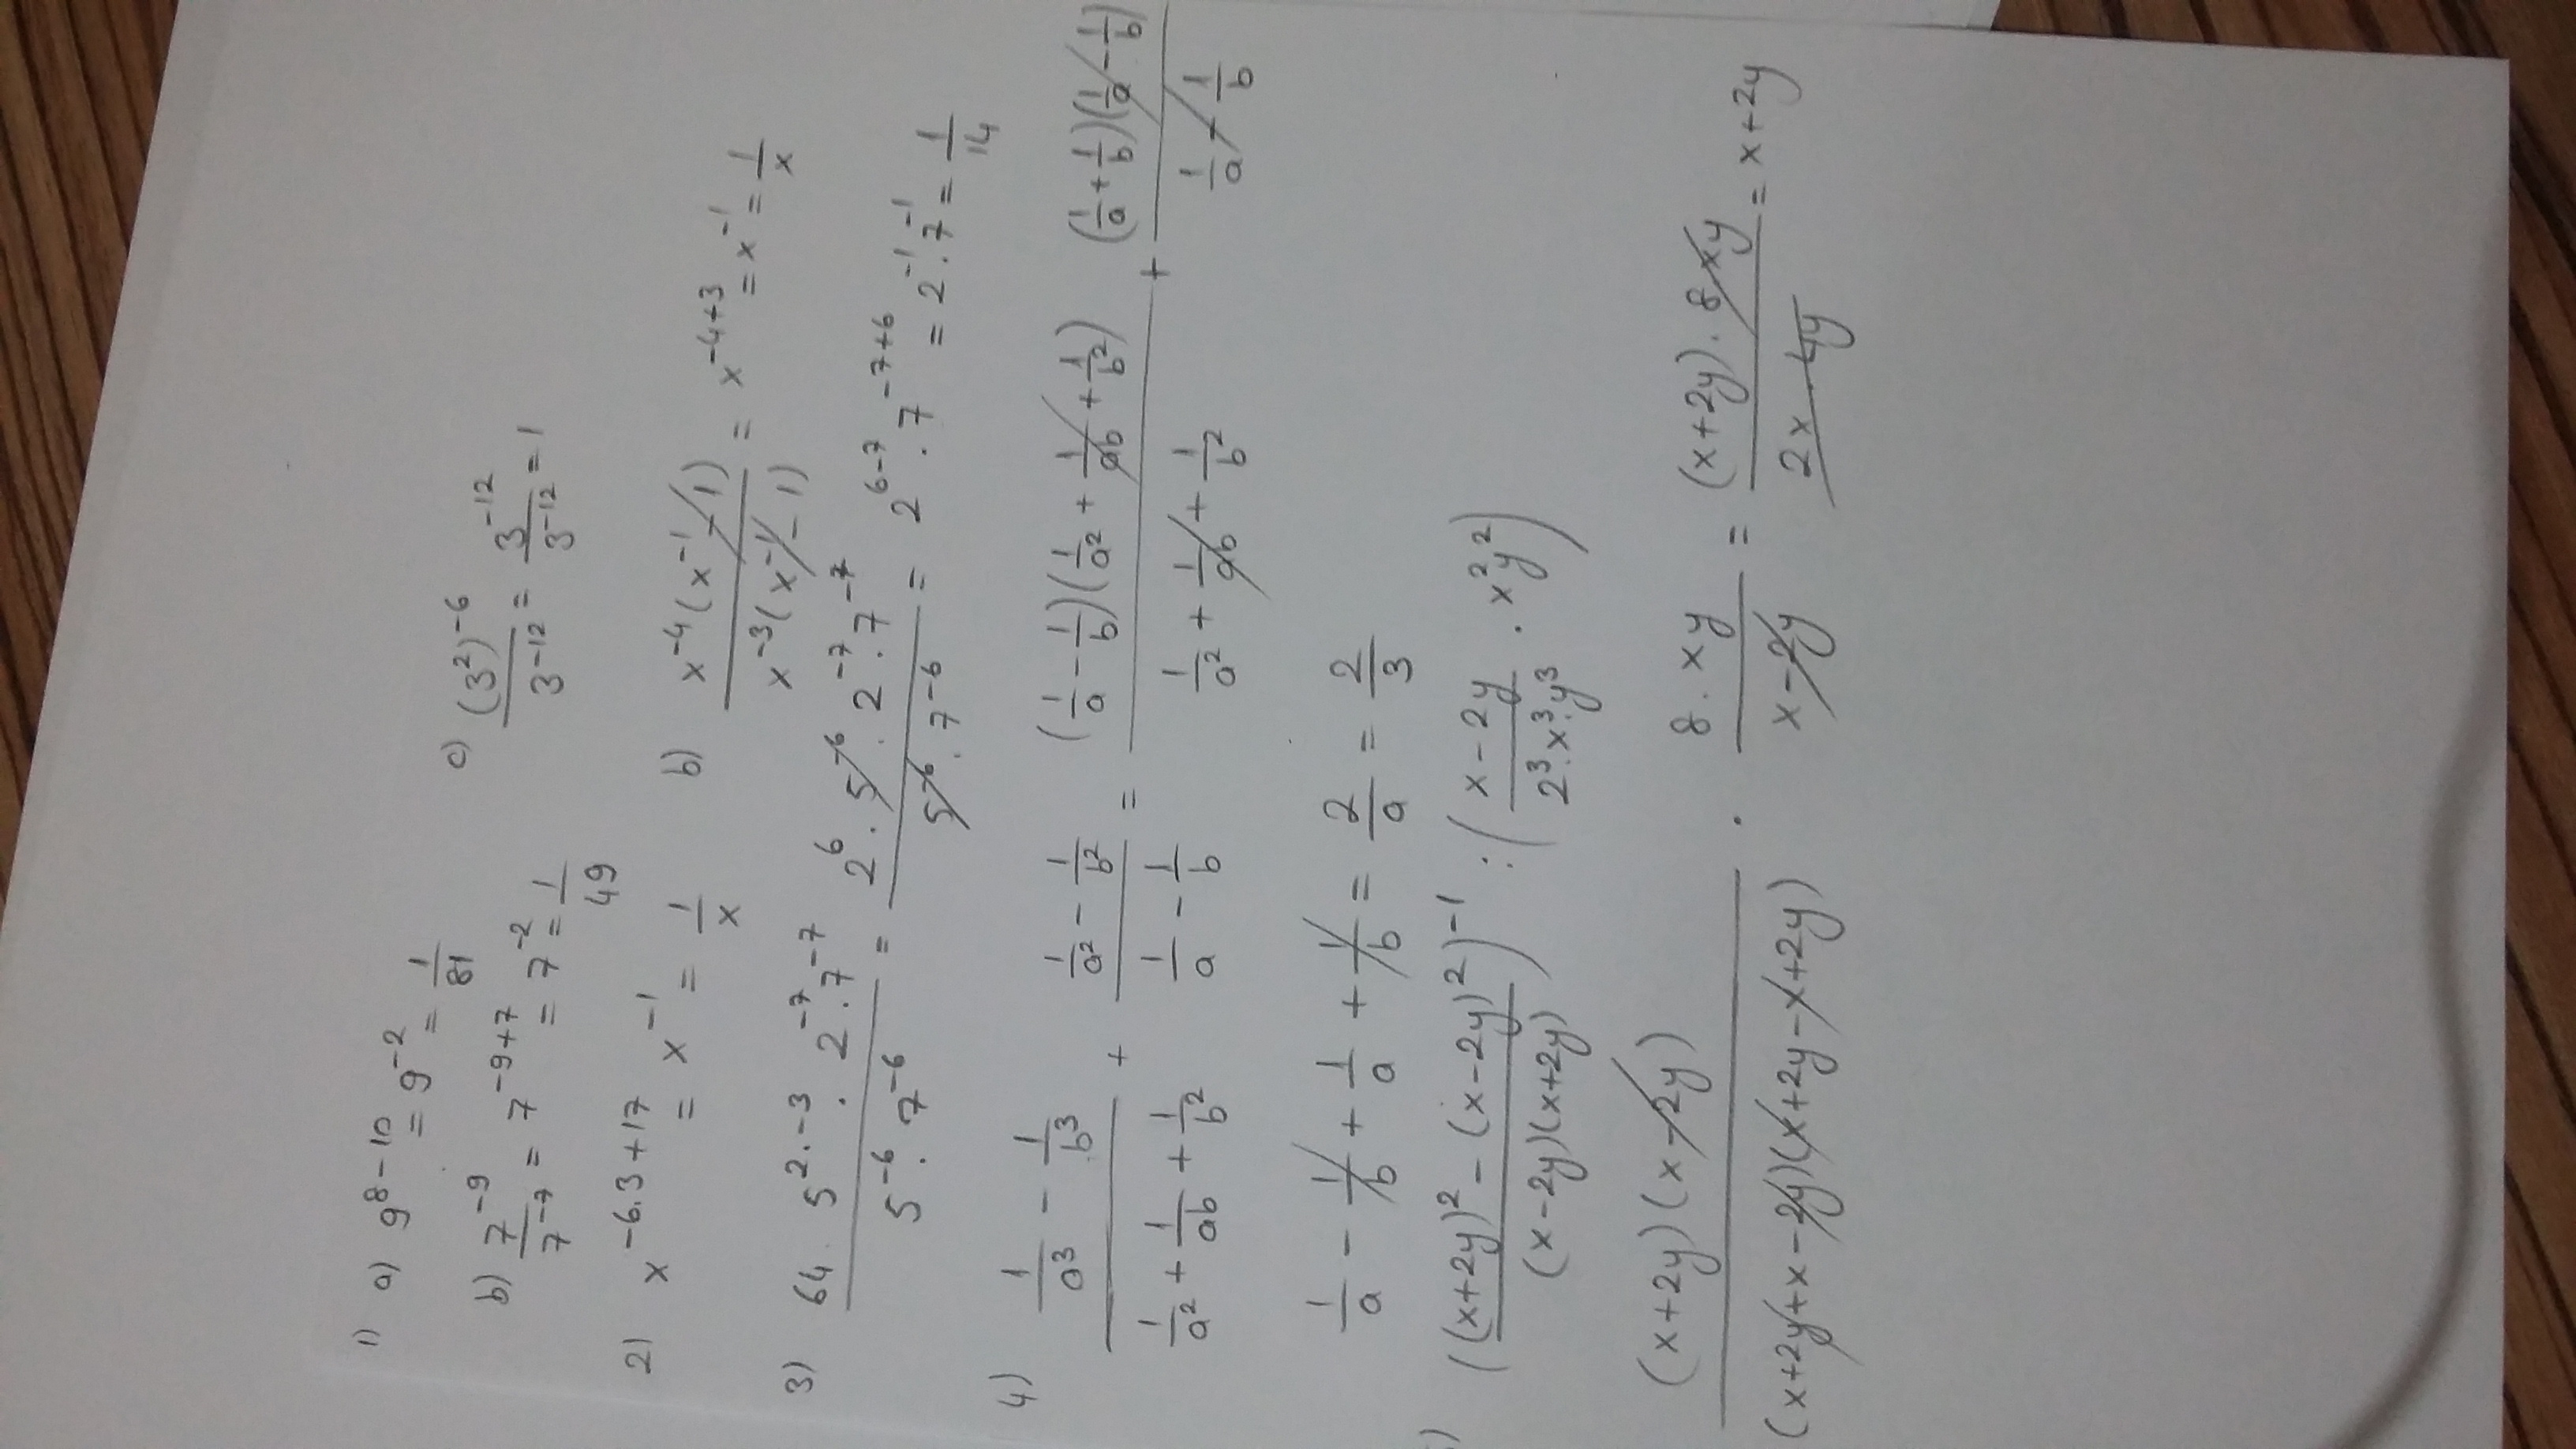 1) a) 9^(8-10) = 9^(-2) = 1/81
c) (3^2)^(-6) / 3^(-12) = 3^(-12) / 3^(-12) = 1
b) 7^(-9) / 7^(-7) = 7^(-9+7) = 7^(-2) = 1/49
2) x^(-6.3+17) = x^(-1) = 1/x
b) x^(-4)(x^(-1) - 1) / x^(-3)(x^(-1) - 1) = x^(-4+3) = x^(-1) = 1/x
3) 64 . 5^(2.-3) . 2^(-7) . 7^(-7) / 5^(-6) . 7^(-6) = 2^6 . 5^(-6) . 2^(-7) . 7^(-7) / 5^(-6) . 7^(-6) = 2^(6-7) . 7^(-7+6) = 2^(-1) . 7^(-1) = 1/14
4) (1/a^3 - 1/b^3) / (1/a^2 + 1/ab + 1/b^2) + (1/a^2 - 1/b^2) / (1/a - 1/b) = (1/a - 1/b)(1/a^2 + 1/ab + 1/b^2) / (1/a^2 + 1/ab + 1/b^2) + (1/a + 1/b)(1/a - 1/b) / (1/a - 1/b)
1/a - 1/b + 1/a + 1/b = 2/a = 2/3
(((x+2y)^2 - (x-2y)^2) / (x-2y)(x+2y))^(-1) : ((x-2y) / 2^3.x^3.y^3 . x^2y^2)
(x+2y)(x-2y) / (x+2y+x-2y)(x+2y-x+2y) . 8.xy / x-2y = (x+2y).8xy / 2x.4y = x+2y